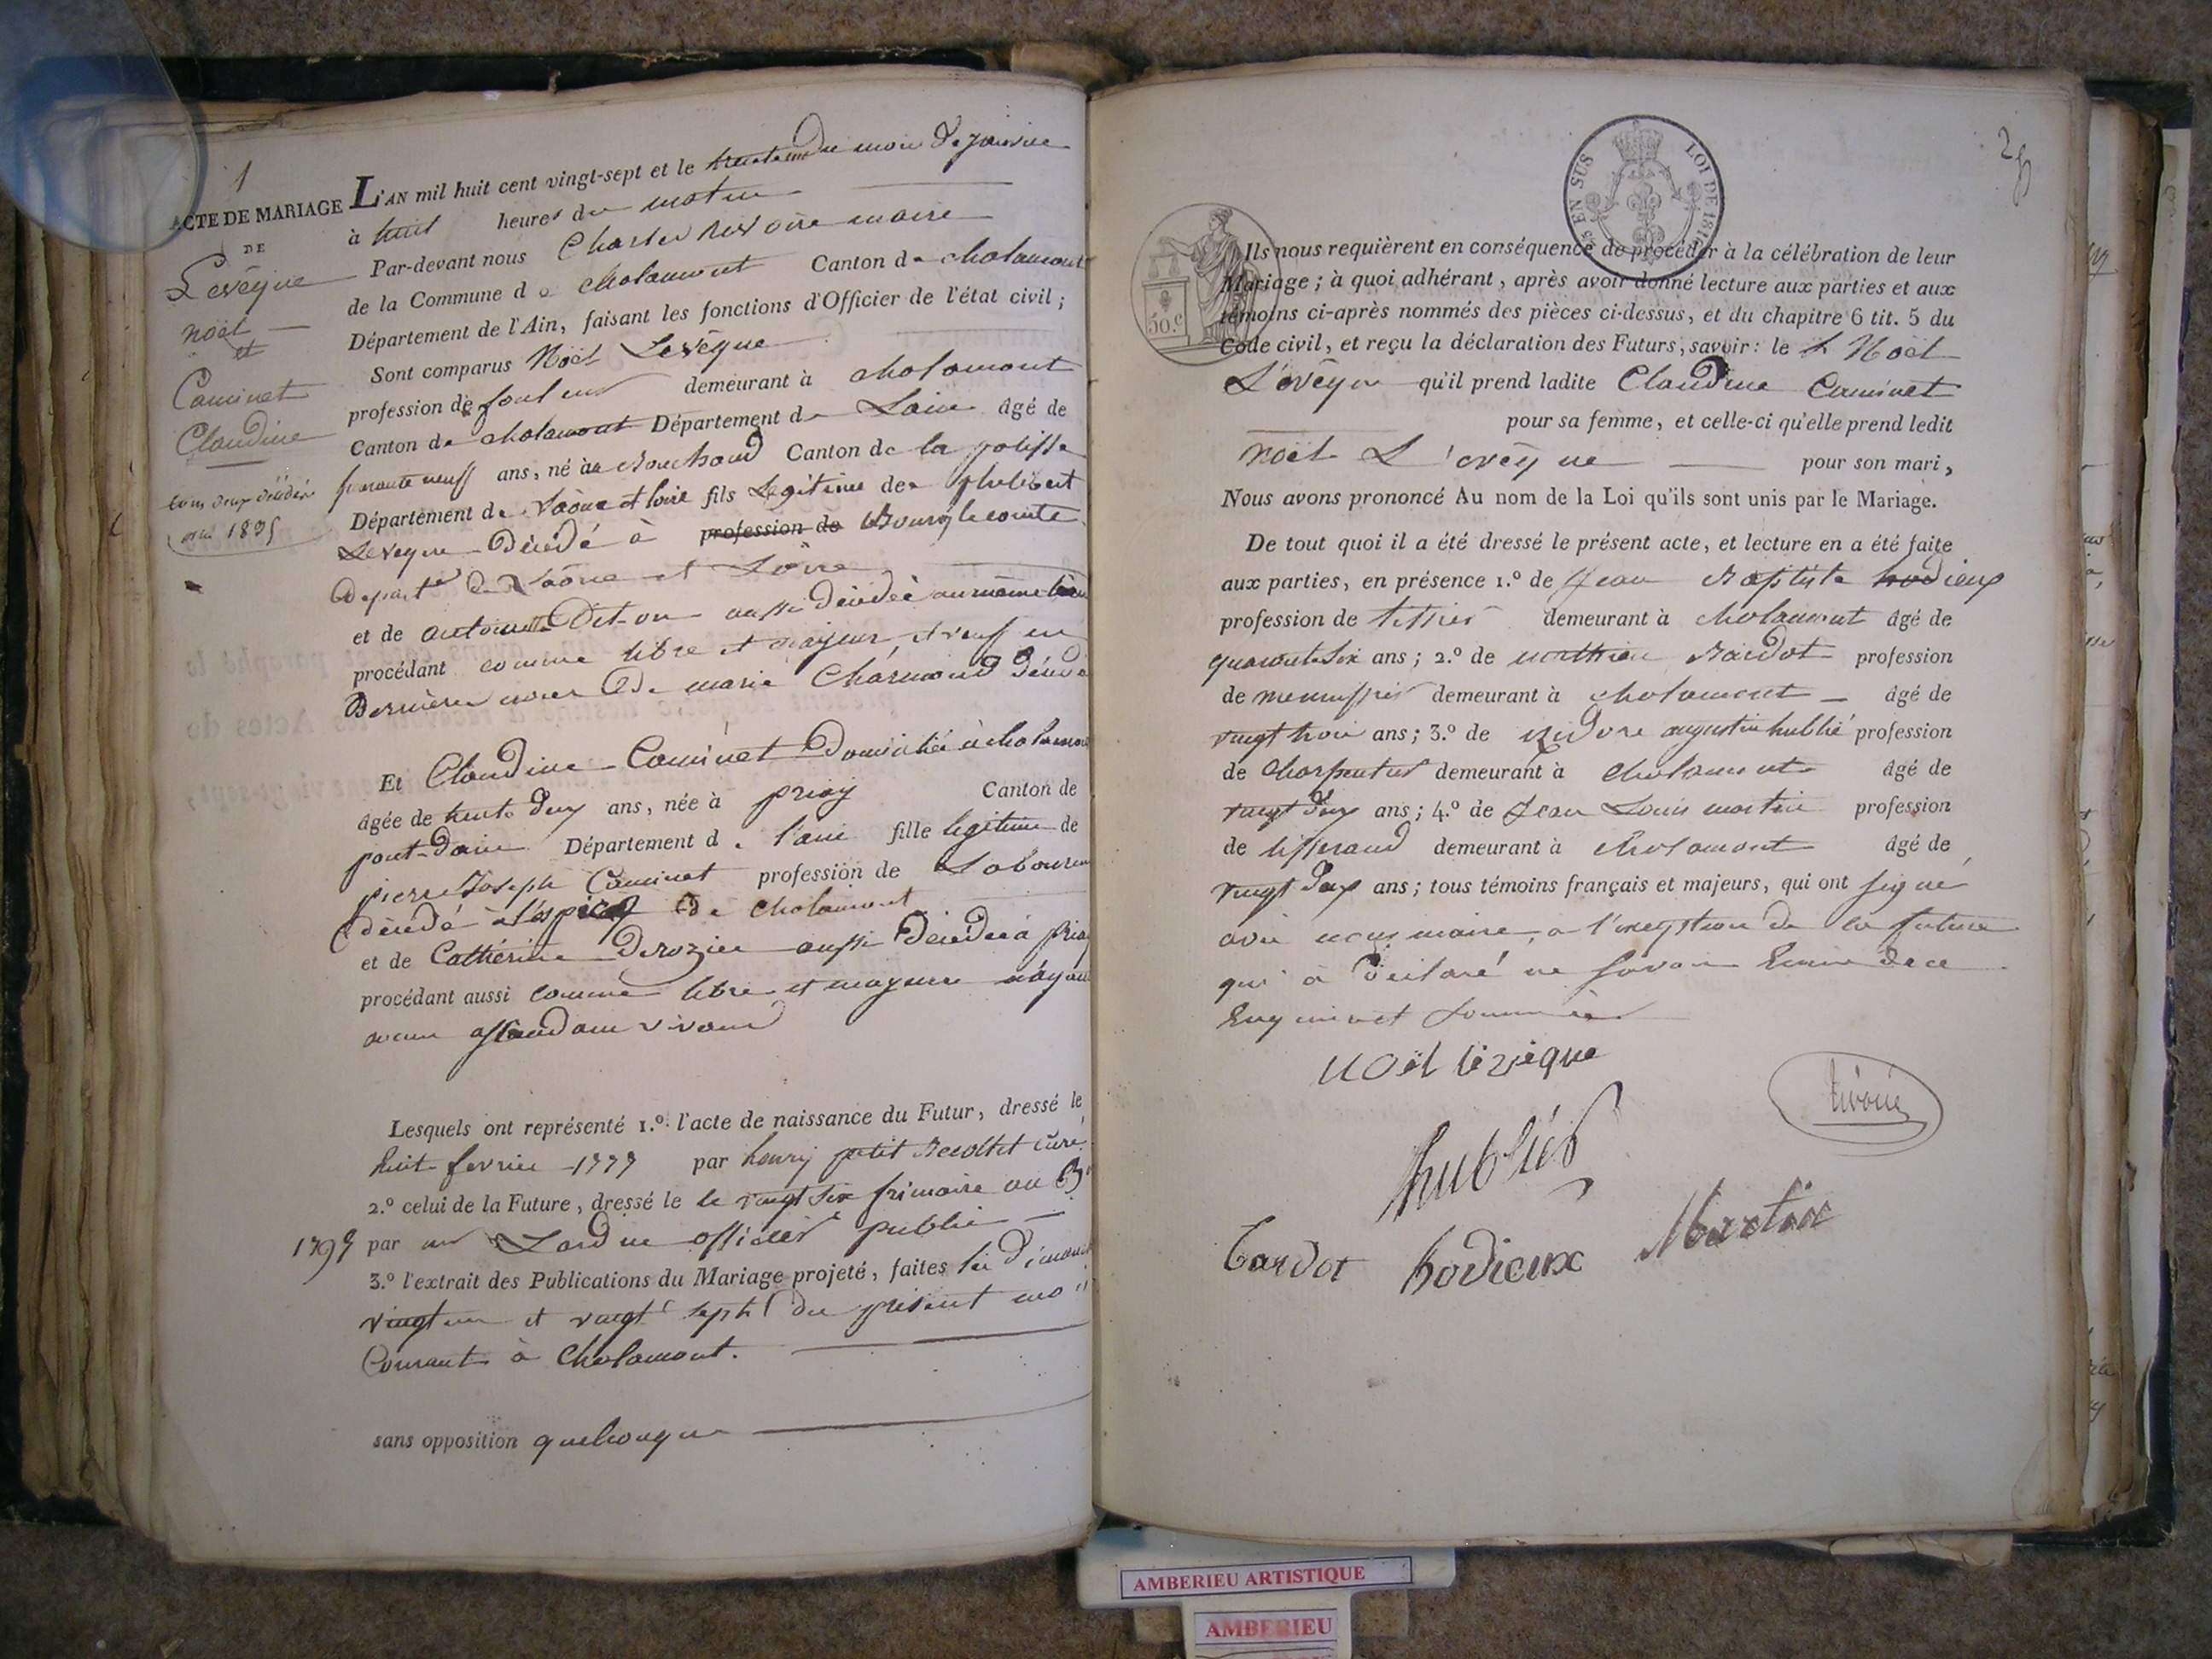 1
ACTE DE MARIAGE
DE
Levêque
noël
et
Caminet
Claudine
tous deux décédés
1835
L'AN mil huit cent vingt-sept et le trente un du mois de janvier
à huit heures du matin
Par-devant nous Charles maire
de la Commune de chalamont Canton de chalamont
Département de l'Ain, faisant les fonctions d'Officier de l'état civil;
Sont comparus Noël Levêque
profession de demeurant à chalamont
Canton de chalamont Département de Lain âgé de
quarante neuf ans, né à Canton de la palisse
Département de Saône et loire fils Legitime de philibert
Leveque Décédé à profession de Bourg le comte
Depart de Saône et Loire
et de antoinette aussi décédée au même lieu
procédant comme libre et majeur, et veuf en
Dernière noces de marie Charnaud
Et Claudine Caminet Domiciliée à chalamont
âgée de trente deux ans, née à priay Canton de
pont-dain Département de l'ain fille legitime de
pierre Joseph Caminet profession de Laboureur
décédé à de chalamont
et de Cathérine Derozier aussi Décédée à priay
procédant aussi comme libre et majeure n'ayant
aucun vivant
Lesquels ont représenté 1.º l'acte de naissance du Futur, dressé le
huit fevrier 1777 par henry petit curé
2.º celui de la Future, dressé le le vingt six frimaire an 3
1794 par officier public
3.º l'extrait des Publications du Mariage projeté, faites les dimanches
vingt un et vingt sept du présent mois
Courant à Chalamont.
sans opposition quelconque
25 EN SUS LOI DE 1816
50.c
Ils nous requièrent en conséquence de procéder à la célébration de leur
Mariage; à quoi adhérant, après avoir donné lecture aux parties et aux
témoins ci-après nommés des pièces ci-dessus, et du chapitre 6 tit. 5 du
Code civil, et reçu la déclaration des Futurs, savoir: le Noël
L'evêque qu'il prend ladite Claudine Caminet
pour sa femme, et celle-ci qu'elle prend ledit
noël L'evêque pour son mari,
Nous avons prononcé Au nom de la Loi qu'ils sont unis par le Mariage.
De tout quoi il a été dressé le présent acte, et lecture en a été faite
aux parties, en présence 1.º de Jean Baptiste hodieux
profession de tissier demeurant à chalamont âgé de
quarante six ans; 2.º de mathieu Bardot profession
de menuisier demeurant à chalamont âgé de
vingt trois ans; 3.º de isidore augustin hublié profession
de charpentier demeurant à chalamont âgé de
vingt deux ans; 4.º de Jean Louis martin profession
de tisserand demeurant à Chalamont âgé de
vingt deux ans; tous témoins français et majeurs, qui ont signé
avec nous maire, a l'exeption de la future
qui à déclaré ne savoir Ecrire de ce
Enquise et sommée
noël lévêque
hubliés
Bardot hodieux Martin
AMBERIEU ARTISTIQUE
AMBERIEU